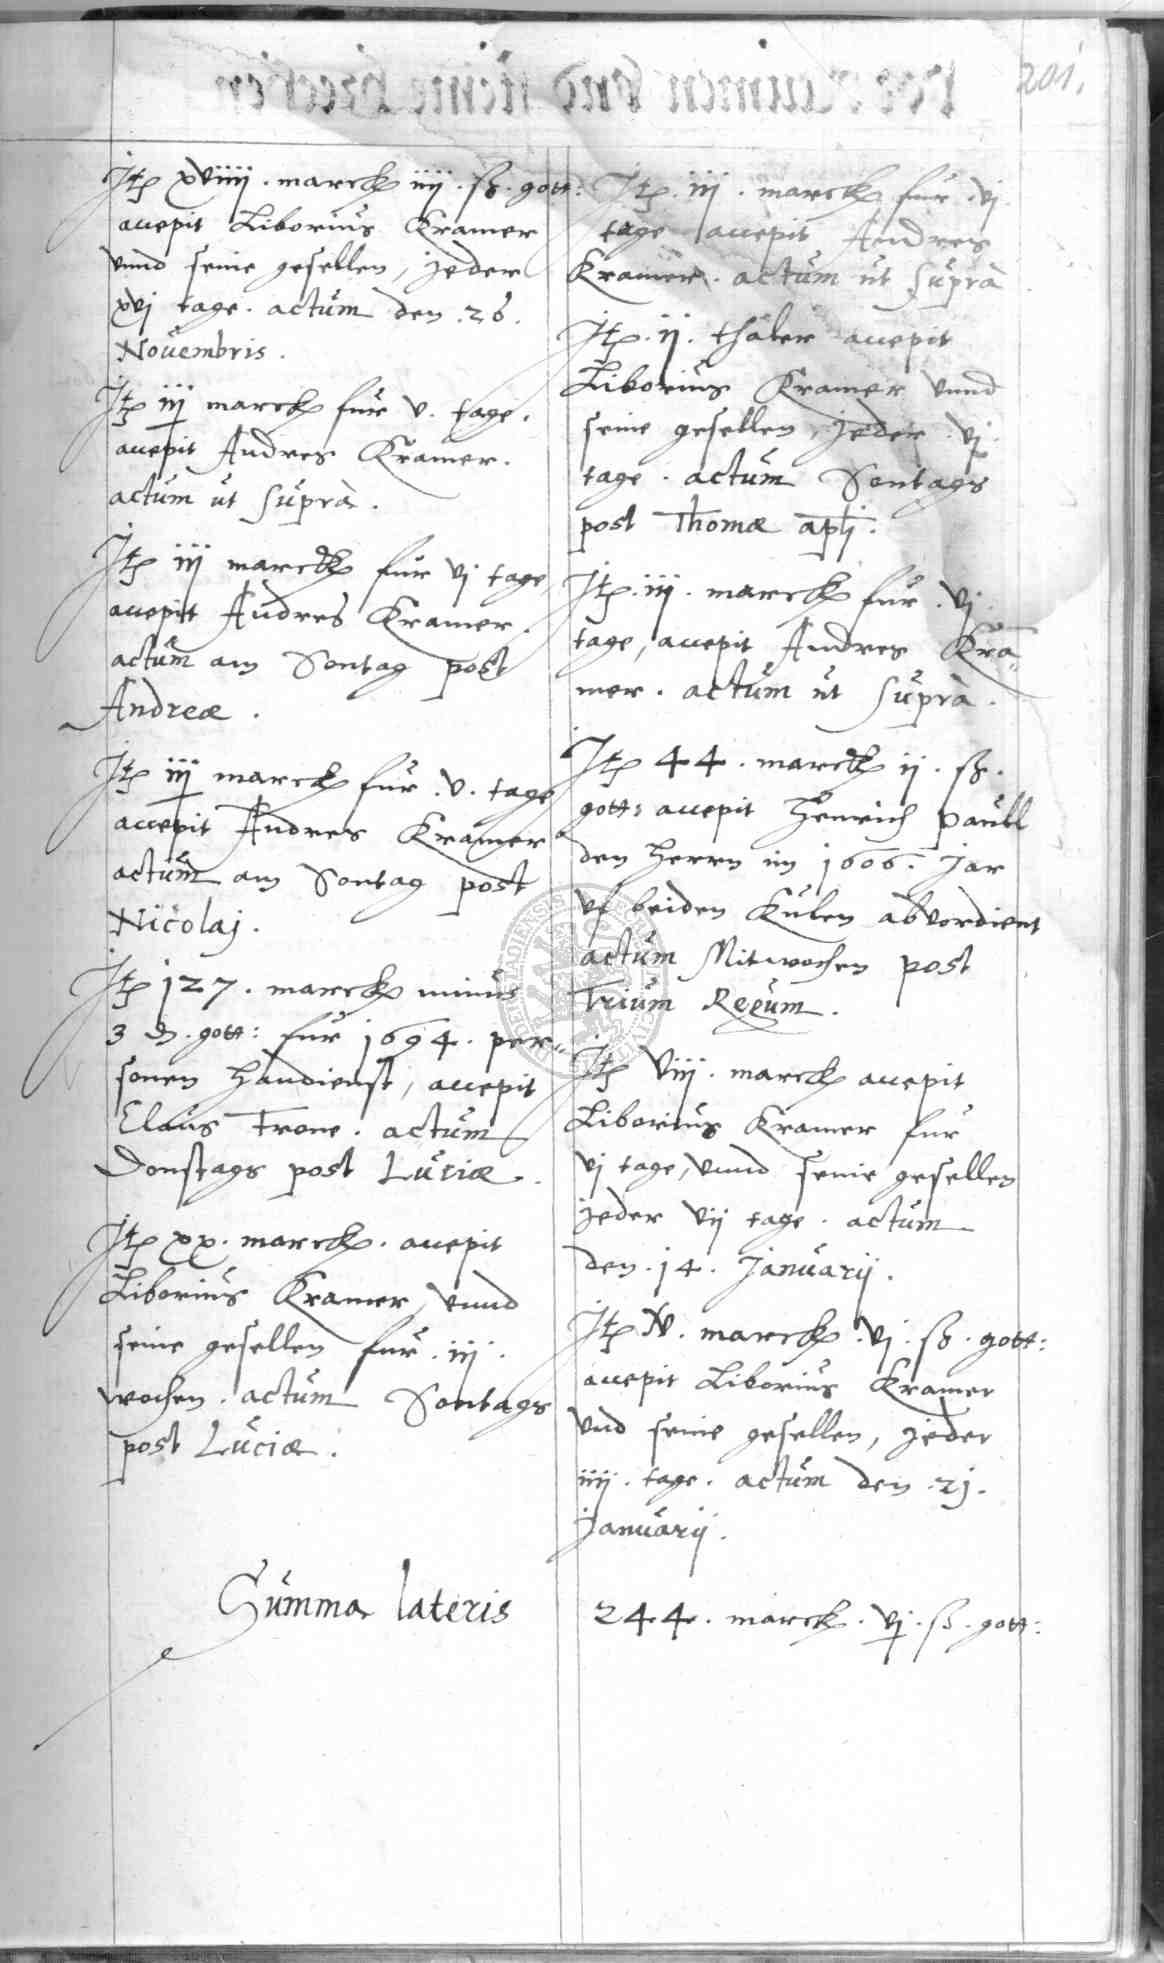 201.
Itp xviiij . marck iiij . ß . gott:
accepit Liborius Kramer
vnnd seine gesellen, jeder
xvj tage . actum den . 26 .
Nouembris .
Itp iij marck fur v . tage .
accepit Andres Kramer .
actum ut supra .
Itp iij marck fur vj tage,
accepit Andres Kramer .
actum am Sontag post
Andreæ .
Itp iij marck fur . v . tage
accepit Andres Kramer
actum am Sontag post
Nicolaj .
Itp 127 . marck minus
3 d . gott: fur 1694 . per-
sonen handienst, accepit
Claus Trone . actum
Donstags post Luciæ .
Itp xx . marck . accepit
Liborius Kramer, vnnd
seine gesellen fur . iij .
wochen . actum Sontags
post Luciæ .
Itp . iij . marck fur . vj
tage accepit Andres
Kramer . actum ut supra
Itp . ij . thaler accepit
Liborius Kramer vnnd
seine gesellen, jeder . vj .
tage . actum Sontags
post Thomæ apli .
Itp . iij . marck fur . vj .
tage, accepit Andres Kra-
mer . actum ut supra .
Itp 44 . marck ij . ß .
gott: accepit Henrich Paull
den Herrn im 1606 . Jar
vf beiden Kulen abverdient
actum Mitwochen post
Trium Regum .
Itp viij . marck accepit
Liborius Kramer fur
vj tage, vnnd seine gesellen
jeder vij tage . actum
den . 14 . Januarij .
Itp xv . marck . vj . ß . gott:
accepit Liborius Kramer
vnd seine gesellen, jeder
iiij . tage . actum den . 21 .
Januarij .
Summa lateris 244 . marck . vj . ß . gott: